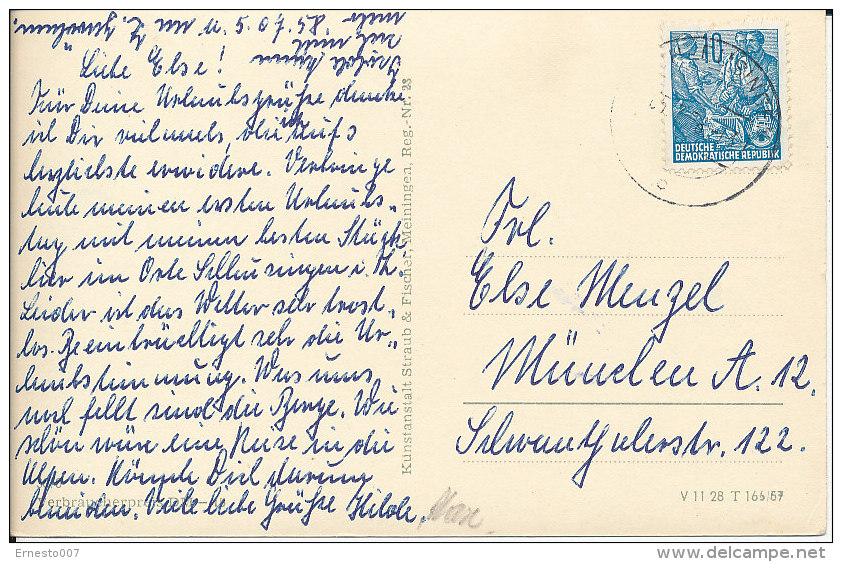 11.5.07.58.
Liebe Else!
Für Deine Urlaubsgrüße danke
ich Dir vielmals, die ich aufs
herzlichste erwidere. Verbringe
heute meinen ersten Urlaubs-
tag mit meinem besten Stück
hier im Orte Schleusingen i. Th.
Leider ist das Wetter sehr trost-
los. Beeinträchtigt sehr die Ur-
laubstimmung. Was uns
noch fehlt sind die Berge. Wie
schön wäre eine Reise in die
Alpen. Könnte Dich darum
beneiden. Viele liebe Grüße Hilde,
Max
Verbraucherpreis
Kunstanstalt Straub & Fischer, Meiningen, Reg.-Nr. 23
10
DEUTSCHE
DEMOKRATISCHE REPUBLIK
Frl.
Else Menzel
München A. 12.
Schwanthalerstr. 122.
V 11 28 T 166/57
Ernesto007
delcampe.net